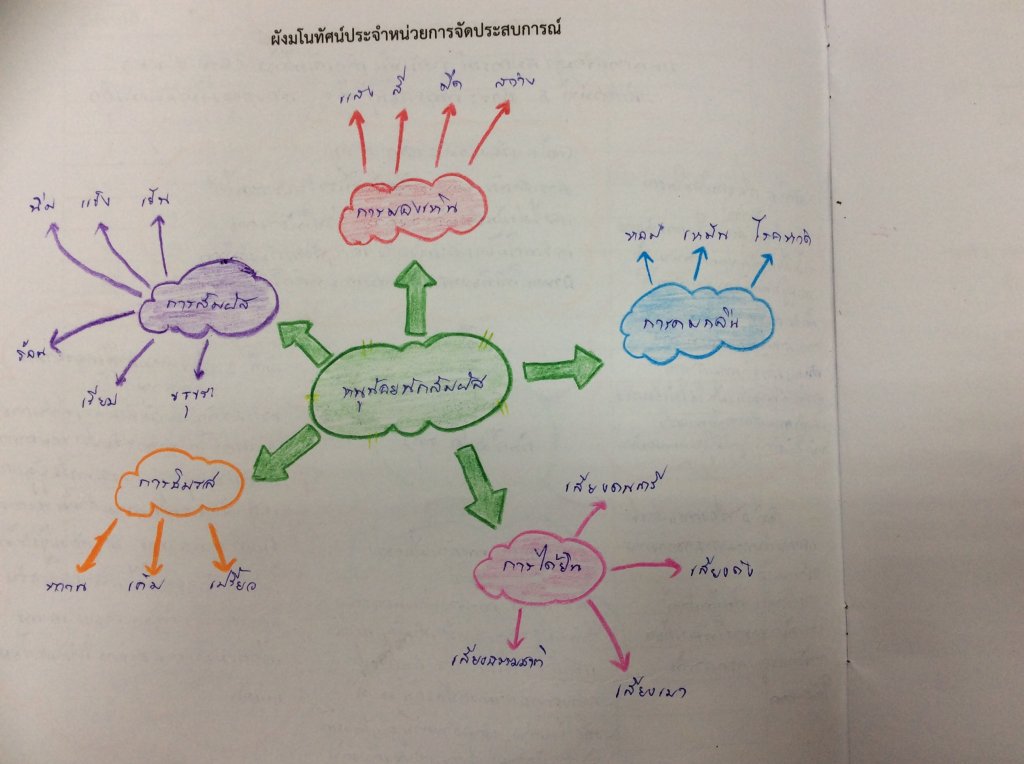 ผังมโนทัศน์ประจำหน่วยการจัดประสบการณ์
แสง สี มืด สว่าง
การมองเห็น
นิ่ม แข็ง เย็น
การสัมผัส
ร้อน
เรียบ ขรุขระ
การดมกลิ่น
หอม เหม็น
หนูน้อยนักสัมผัส
การชิมรส
หวาน เค็ม เปรี้ยว
การได้ยิน
เสียงดนตรี
เสียงดัง
เสียงธรรมชาติ
เสียงเบา